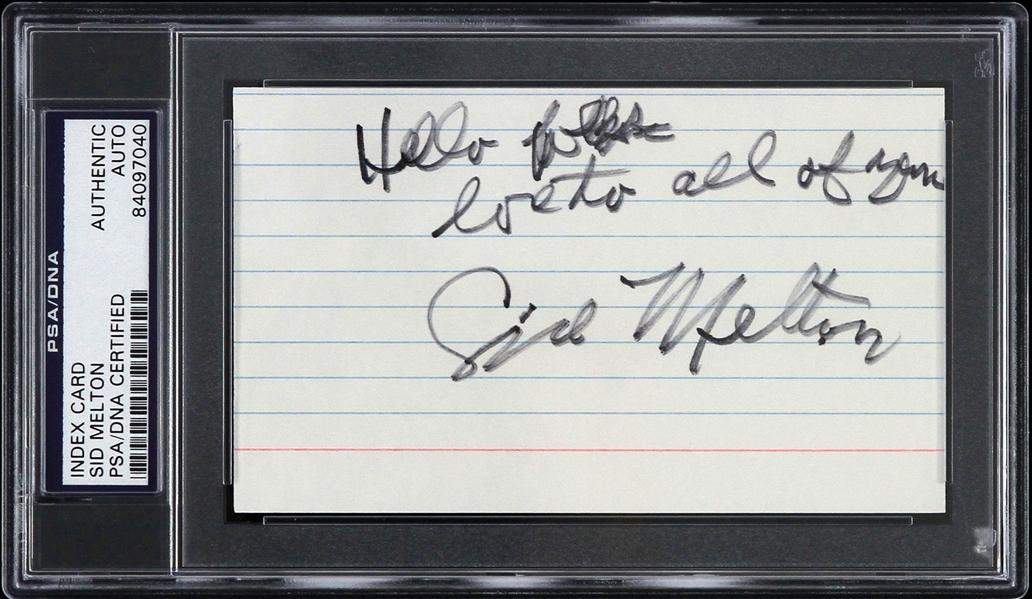 PSA/DNA
INDEX CARD
SID MELTON
PSA/DNA CERTIFIED
AUTHENTIC
AUTO
84097040
Hello
love to all of you
Sid Melton